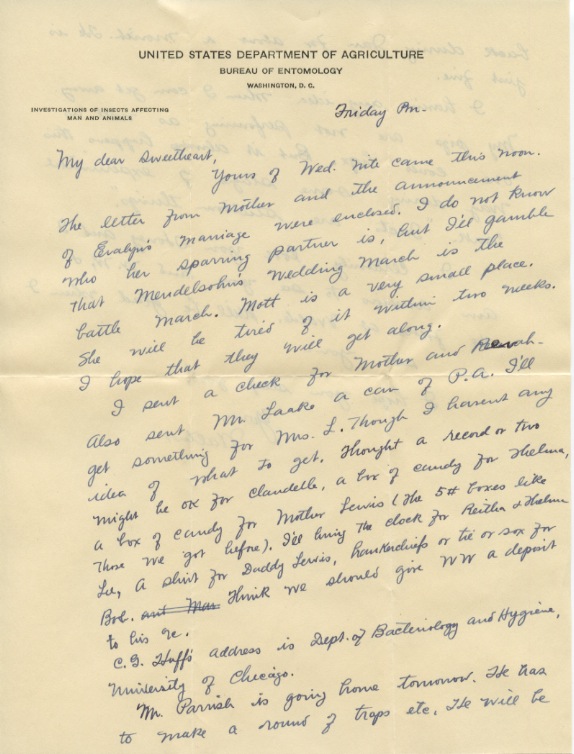 UNITED STATES DEPARTMENT OF AGRICULTURE
BUREAU OF ENTOMOLOGY
WASHINGTON, D. C.
INVESTIGATIONS OF INSECTS AFFECTING
MAN AND ANIMALS
Friday Pm.
My dear Sweetheart,
Yours of Wed. nite came this noon.
The letter from Mother and the announcement
of Evalyn's marriage were enclosed. I do not know
who her sparring partner is, but I'll gamble
that Mendelsohn's wedding March is the
battle march. Mott is a very small place.
She will be tired of it within two weeks.
I hope that they will get along.
I sent a check for Mother and
Also sent Mr. Laake a can of P.A. I'll
get something for Mrs. L. Though I havent any
idea of what to get. Thought a record or two
might be ox for Claudelle, a box of candy for Thelma,
a box of candy for Mother Lewis (the 5# boxes like
those we got before). I'll bring the clock for Reitha & Thelma
Lu, A shirt for Daddy Lewis, hankerchiefs or tie or sox for
Bob. Think we should give WW a deposit
to his %.
C.G. Huff's address is Dept. of Bacteriology and Hygiene,
University of Chicago.
Mr. Parrish is going home tomorrow. He has
to make a round of traps etc. He will be